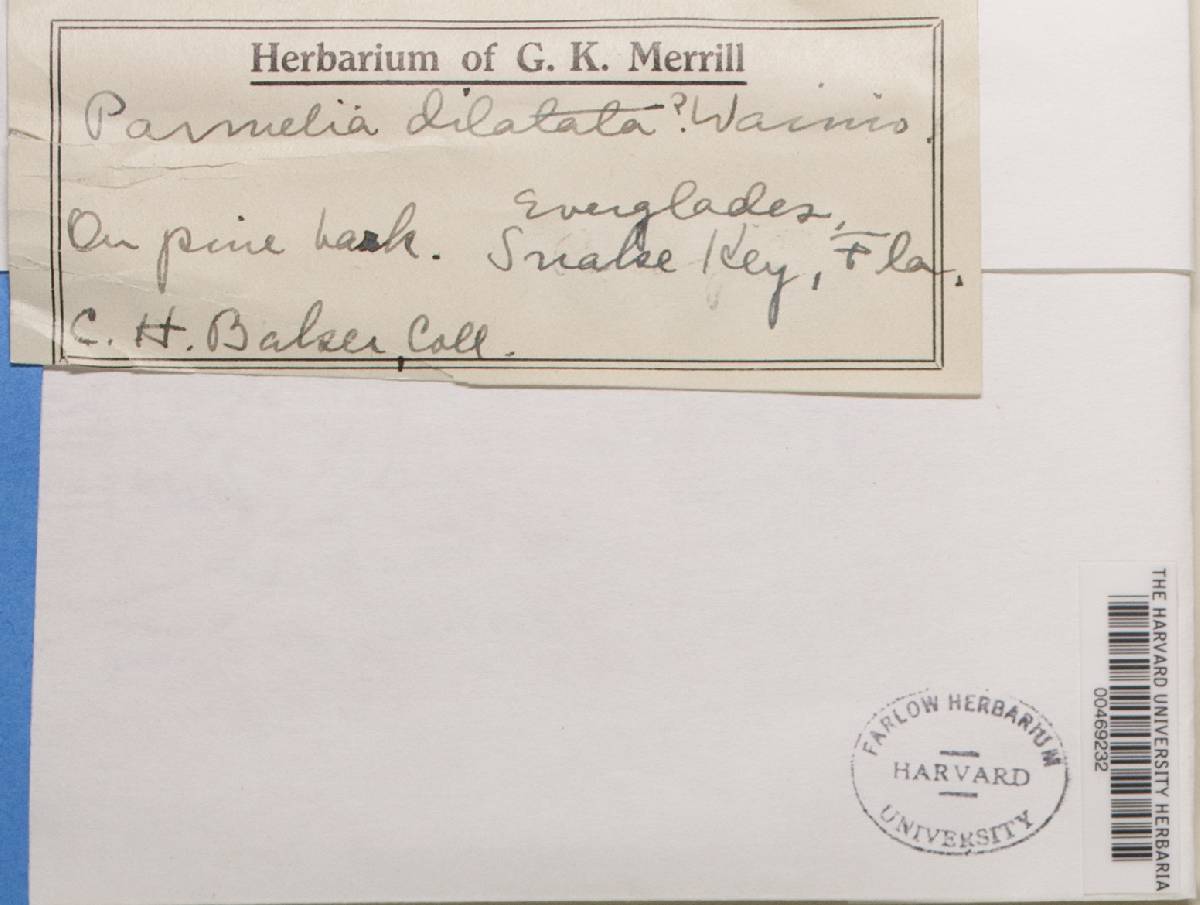 Herbarium of G. K. Merrill
Parmelia dilatata? Wainio.
On pine bark. Everglades,
Snake Key, Fla.
C. H. Baker, Coll.
FARLOW HERBARIUM
HARVARD
UNIVERSITY
THE HARVARD UNIVERSITY HERBARIA
00469232